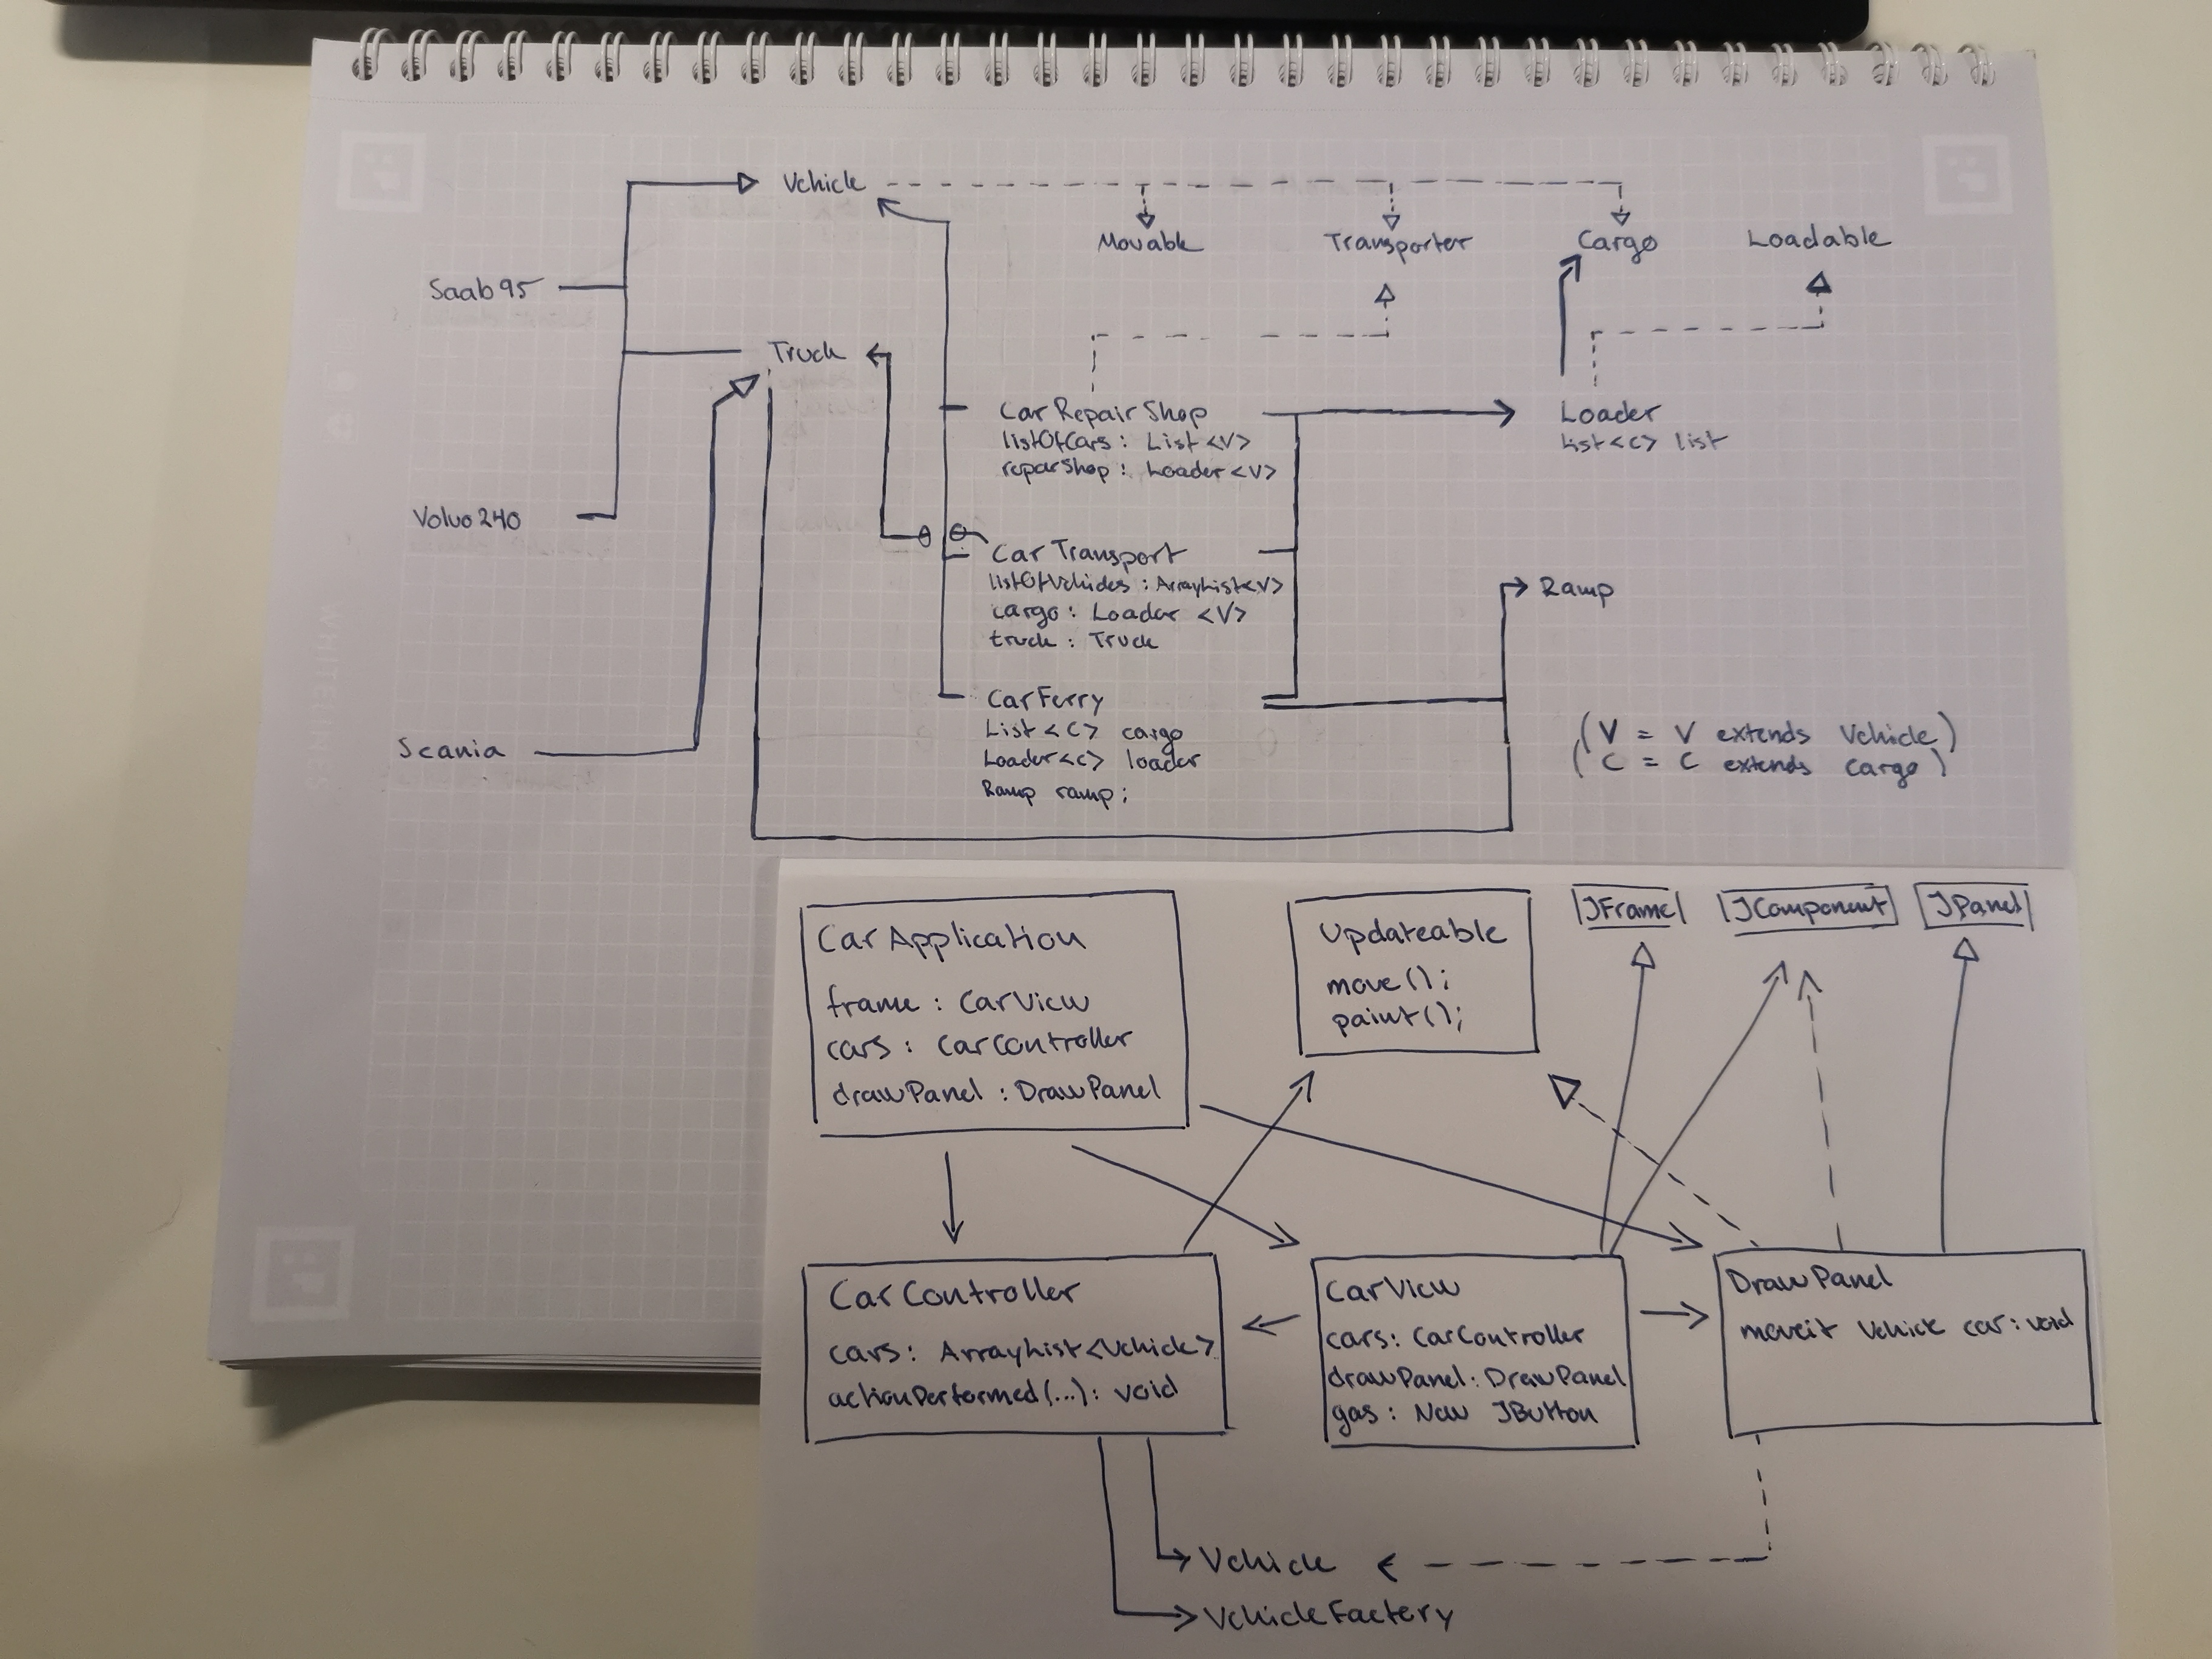 Vehicle
Movable
Transporter
Cargo
Loadable
Saab95
Truck
CarRepairShop
listOfCars: List<V>
reparShop: Loader<V>
Loader
List<C> list
Volvo240
CarTransport
listOfVehicles: ArrayList<V>
cargo: Loader <V>
truck: Truck
Ramp
CarFerry
List<C> cargo
Loader<C> loader
Ramp ramp;
Scania
(V = V extends Vehicle)
(C = C extends Cargo)
CarApplication
frame: CarView
cars: CarController
drawPanel: DrawPanel
Updateable
move();
paint();
JFrame
JComponent
JPanel
CarController
cars: ArrayList<Vehicle>
actionPerformed(...): void
CarView
cars: CarController
drawPanel: DrawPanel
gas: New JButton
DrawPanel
moveit Vehicle car: void
Vehicle
VehicleFactory